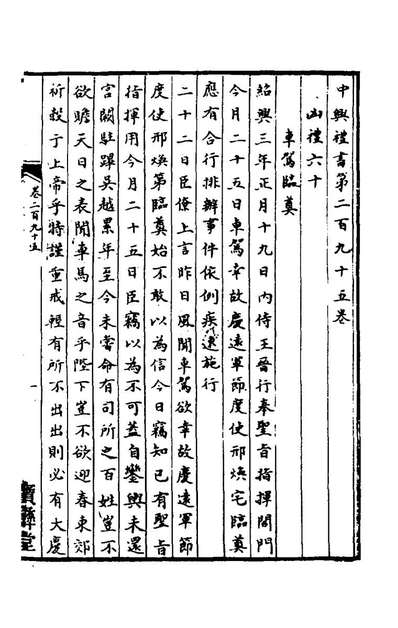 中興禮書第二百九十五卷
凶禮六十
車駕臨奠
紹興三年正月十九日內侍王晉行奉聖旨指揮閤門
今月二十五日車駕幸故慶遠軍節度使邢煥宅臨奠
應有合行排辦事件依例疾速施行
二十二日臣僚上言昨日風聞車駕欲幸故慶遠軍節
度使邢煥第臨奠始不敢以為信今日竊知已有聖旨
指揮用今月二十五日臣竊以為不可蓋自鑾輿未還
宮闕駐蹕吳越累年至今未嘗命有司所之百姓豈不
欲瞻天日之表聞車馬之音乎陛下豈不欲迎春東郊
祈穀于上帝乎特謹重戒輕有所不出出則必有大慶
卷二百九十五
一